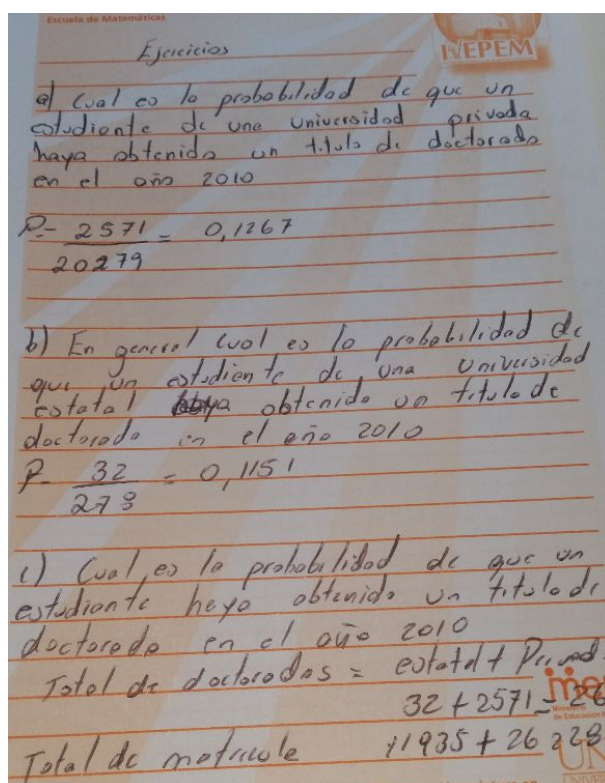 Escuela de Matemáticas
IVEPEM
Ejercicios
a) Cual es la probabilidad de que un
estudiante de una universidad privada
haya obtenido un titulo de doctorado
en el año 2010
P= 2571 = 0,1267
20279
b) En general cual es la probabilidad de
que un estudiante de una universidad
estatal haya obtenido un titulo de
doctorado en el año 2010
P= 32 = 0,1151
278
c) Cual es la probabilidad de que un
estudiante haya obtenido un titulo de
doctorado en el año 2010
Total de doctorados = estatal + Privad
32 + 2571 = 26
Total de matricula 11935 + 26228